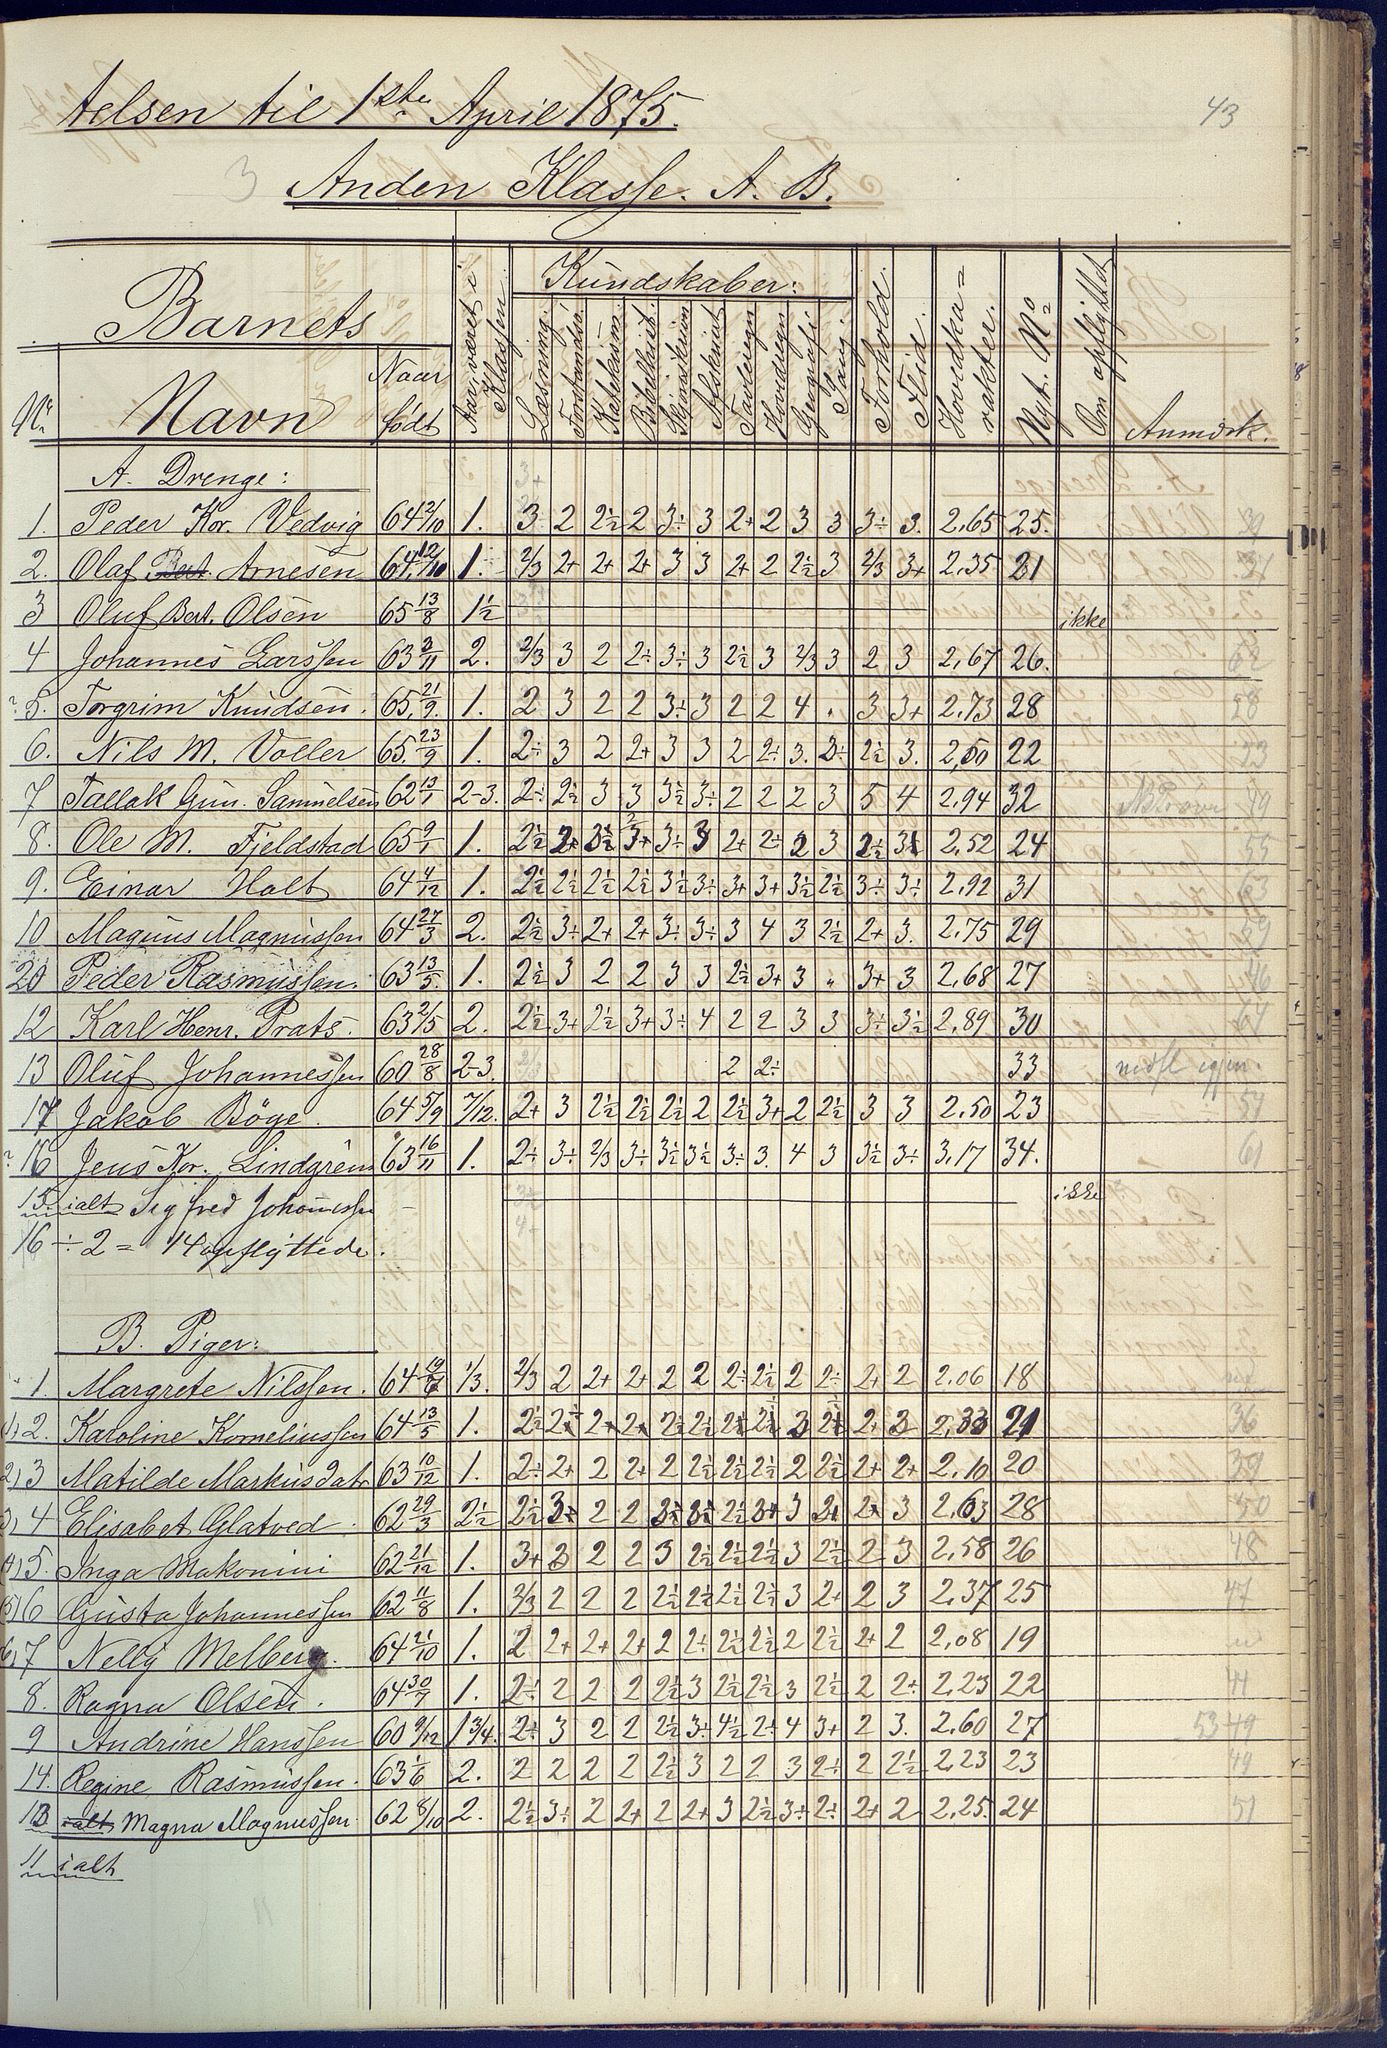 telsen til 1ste April 1875.
43
3
Anden Klasse. A. B.
Barnets
Aar, været i Klassen.
Kundskaber:
Forhold.
Flid.
Hovedka=
rakter.
Nyt. No
Om opflyttet
Anmærk.
No Navn Naar født Læsning. Forstandsö. Katekism. Bibelhist. Skjønskriv Retskriv Tavleregn Hovedregn Geografi Sang.
A. Drenge:
1. Peder Kor. Vedvig 64 21/10 1. 3 2 2½ 2 3÷ 3 2+ 2 3 3 3÷ 3. 2,65 25.
2. Olaf Bert. Arnesen 64 12/10 1. 2/3 2+ 2+ 2+ 3 3 2+ 2 2½ 3 2/3 3+ 2,35 21
3 Oluf Bert. Olsen 65 13/8 1½ ikke
4 Johannes Larssen 63 3/11 2. 2/3 3 2 2÷ 3÷ 3 2½ 3 2/3 3 2 3 2,67 26.
5. Torgrim Knudsen. 65 21/9 1. 2 3 2 2 3÷ 3 2 2 4 „ 3 3+ 2,73 28
6. Nils M. Voller 65. 23/9 1. 2÷ 3 2 2+ 3 3 2 2÷ 3. 2÷ 2½ 3. 2,50 22
7 Tallak Gun. Samuelsen 62 13/1 2-3. 2÷ 2½ 3 3 3½ 3÷ 2 2 2 3 5 4 2,94 32
8. Ole M. Fjeldstad 65 9/1 1. 2½ 2+ 3½ 3+ 3÷ 3 2+ 2÷ 2 3 2½ 3 2,52 24
9. Einar Holt 64 4/12 1. 2½ 2½ 2½ 2½ 3½ 3÷ 3+ 3+ 3½ 2½ 3÷ 3÷ 2,92 31
10 Magnus Magnussen 64 27/3 2. 2½ 3÷ 2+ 2+ 3÷ 3÷ 3 4 3 2½ 2+ 3. 2,75 29
20 Peder Rasmussen. 63 13/5. 1. 2½ 3 2 2 3 3 2½ 3+ 3 „ 3+ 3 2,68 27
12 Karl Henr. Prats. 63 21/5 2. 2½ 3+ 2½ 3+ 3÷ 4 2 2 3 3 3÷ 3½ 2,89 30
13 Oluf Johannessen 60 28/8 2-3. 2 2÷ 33
17 Jakob Böge. 64 5/9 7/12. 2+ 3 2½ 2½ 2½ 2 2½ 3+ 2 2½ 3 3 2,50 23
16 Jens Kor. Lindgren 63 16/11 1. 2÷ 3÷ 2/3 3÷ 3½ 3½ 3÷ 3. 4 3 3½ 3÷ 3,17 34.
15. ialt Sigfred Johannessen ikke
16 ÷ 2 = 14 opflyttede.
B. Piger:
1. Margrete Nilssen. 64 19/6 1/3. 2/3 2 2+ 2+ 2 2 2÷ 2½ 2 2÷ 2+ 2 2,06 18
1) 2. Karoline Korneliussen 64 13/5 1. 2½ 2 2+ 2+ 2½ 2½ 2+ 3 2,33 21
2) 3 Matilde Markusdatr 63 10/12 1. 2÷ 2+ 2 2+ 2 2½ 2½ 2½ 2 2½ 2+ 2+ 2,10 20
3) 4 Elisabet Glatved. 62 29/3 2½ 2½ 3÷ 2 2 2½ 3+ 3 2+ 3 2,63 28
4) 5. Inga Makonini 62 21/12 1. 3+ 3 2 2 3 2½ 2½ 2½ 3 2½ 2 3 2,58 26
5) 6 Gusta Johannessen 62 11/8 1. 2/3 2 2 2 2½ 2½ 2½ 2½ 3 2+ 2 3 2,37 25
6) 7 Nelly Melberg. 64 21/10 1. 2 2+ 2+ 2+ 2 2÷ 2½ 2½ 2 2½ 2+ 2 2,08 19
8. Ragna Olsen. 64 30/7 1. 2÷ 2 2 2 2½ 3 2½ 2½ 3 2½ 2 2÷ 2,23 22
9 Andrine Hanssen 60 9/12 1 3/4. 2÷ 3 2 2 2½ 3÷ 4½ 2÷ 4 3+ 2 3. 2,60 27
14. Regine Rasmussen. 63 1/6 2. 2 2 2 2 2½ 3 2 2 3 2÷ 2 2½ 2,23 23
13 ialt Magna Magnussen 62 8/10 2. 2½ 3÷ 2 2+ 2 2+ 3 2½ 3÷ 2÷ 2+ 2 2,25. 24
11 ialt